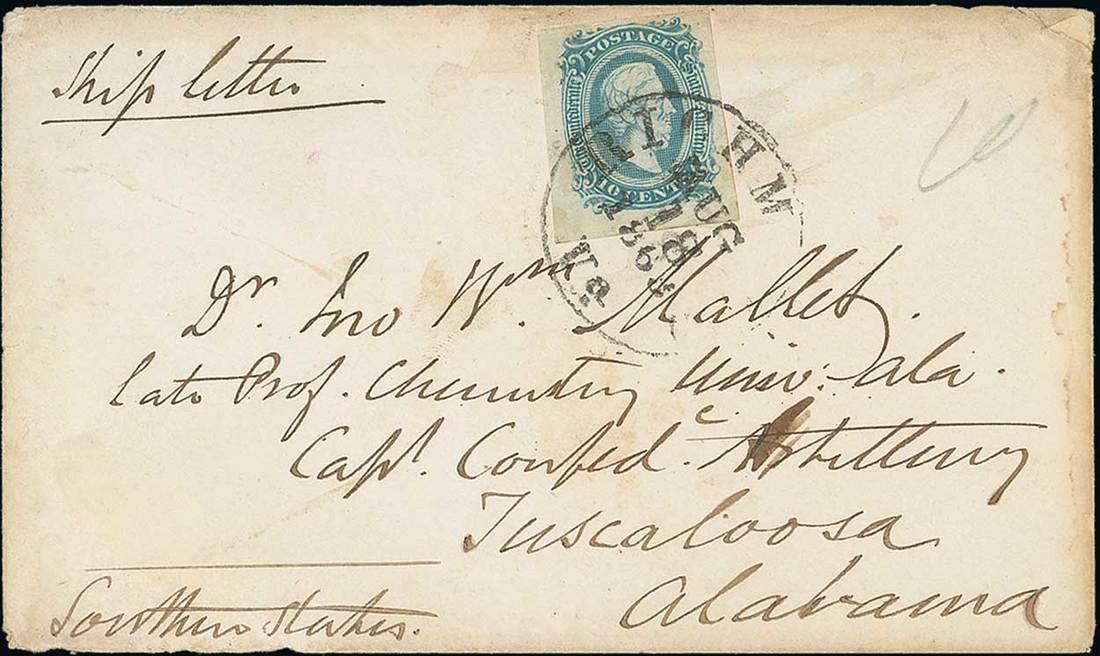 Ship letter
POSTAGE
Confederate States of America
10 CENTS
RICHM
AUG
18
1863
Va
10
Dr. Jno Wm. Mallet.
late Prof. Chemistry Univ. Ala.
Capt. Confed. Artillery
Tuscaloosa
Alabama
Southern States.